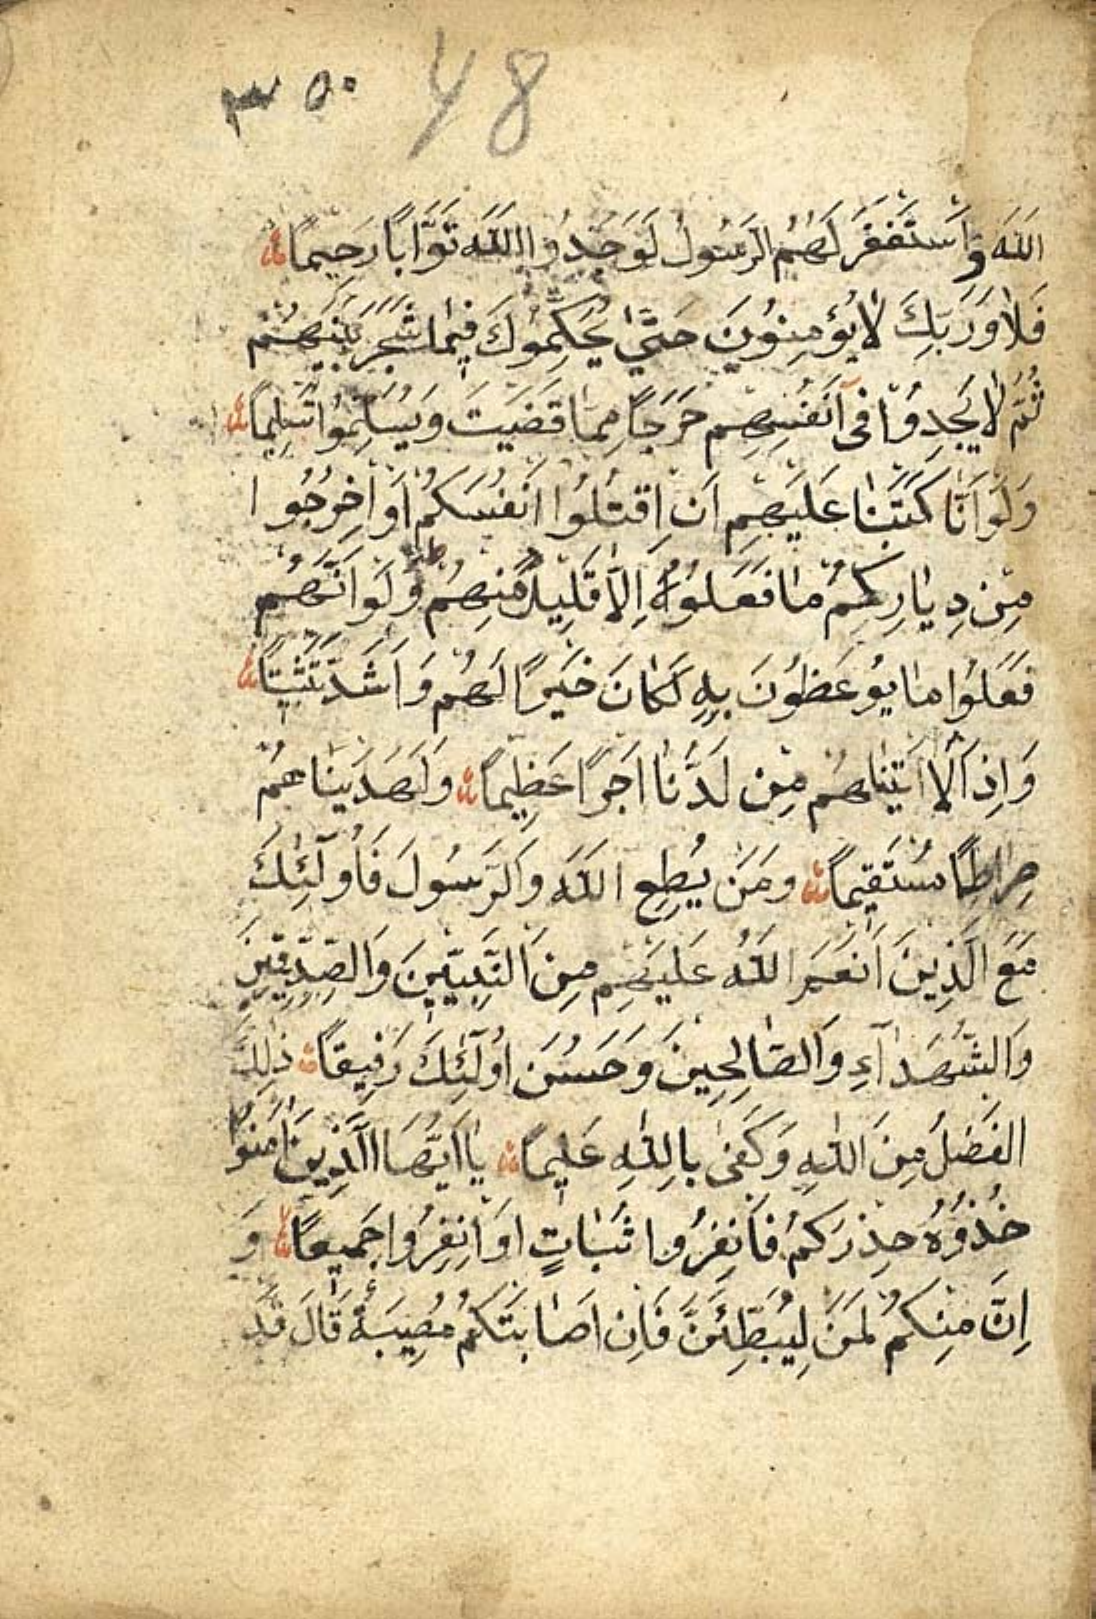 48
اللّٰهَ وَاَسْتَغْفَرَ لَهُمُ الرَّسُولُ لَوَجَدُوا اللّٰهَ تَوَّابًا رَحِيمًا
فَلَا وَرَبِّكَ لَا يُؤْمِنُونَ حَتّٰى يُحَكِّمُوكَ فِيمَا شَجَرَ بَيْنَهُمْ
ثُمَّ لَا يَجِدُوا فِى اَنْفُسِهِمْ حَرَجًا مِمَّا قَضَيْتَ وَيُسَلِّمُوا تَسْلِيمًا
وَلَوْ اَنَّا كَتَبْنَا عَلَيْهِمْ اَنِ اقْتُلُوا اَنْفُسَكُمْ اَوِ اخْرُجُوا
مِنْ دِيَارِكُمْ مَا فَعَلُوهُ اِلَّا قَلِيلٌ مِنْهُمْ وَلَوْ اَنَّهُمْ
فَعَلُوا مَا يُوعَظُونَ بِهِ لَكَانَ خَيْرًا لَهُمْ وَاَشَدَّ تَثْبِيتًا
وَاِذًا لَاٰتَيْنَاهُمْ مِنْ لَدُنَّا اَجْرًا عَظِيمًا وَلَهَدَيْنَاهُمْ
صِرَاطًا مُسْتَقِيمًا وَمَنْ يُطِعِ اللّٰهَ وَالرَّسُولَ فَاُولٰٓئِكَ
مَعَ الَّذِينَ اَنْعَمَ اللّٰهُ عَلَيْهِمْ مِنَ النَّبِيّٖنَ وَالصِّدِّيقِينَ
وَالشُّهَدَآءِ وَالصَّالِحِينَ وَحَسُنَ اُولٰٓئِكَ رَفِيقًا ذٰلِكَ
الْفَضْلُ مِنَ اللّٰهِ وَكَفٰى بِاللّٰهِ عَلِيمًا يَا اَيُّهَا الَّذِينَ اٰمَنُوا
خُذُوهُ حِذْرَكُمْ فَانْفِرُوا ثُبَاتٍ اَوِ انْفِرُوا جَمِيعًا وَ
اِنَّ مِنْكُمْ لَمَنْ لَيُبَطِّئَنَّ فَاِنْ اَصَابَتْكُمْ مُصِيبَةٌ قَالَ قَدْ